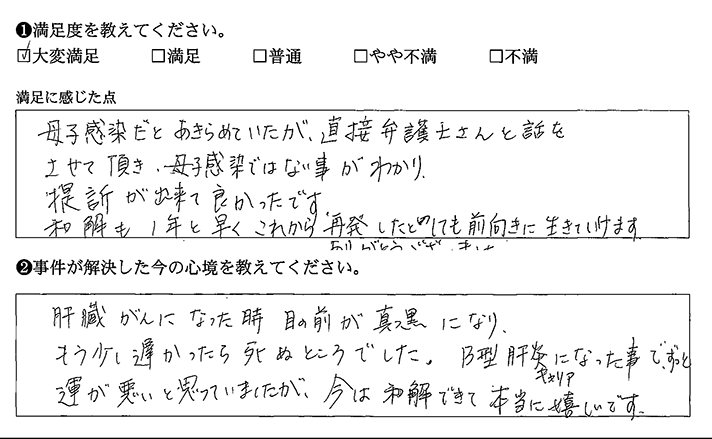 ❶満足度を教えてください。
☑大変満足 □満足 □普通 □やや不満 □不満
満足に感じた点
母子感染だとあきらめていたが、直接弁護士さんと話を
させて頂き、母子感染ではない事がわかり、
提訴が出来て良かったです。
和解も1年と早くこれから再発したとしても前向きに生きていけます
ありがとうございました
❷事件が解決した今の心境を教えてください。
肝臓がんになった時目の前が真っ黒になり、
もう少し遅かったら死ぬところでした。B型肝炎になった事で、ずっと
キャリア
運が悪いと思っていましたが、今は和解できて本当に嬉しいです。